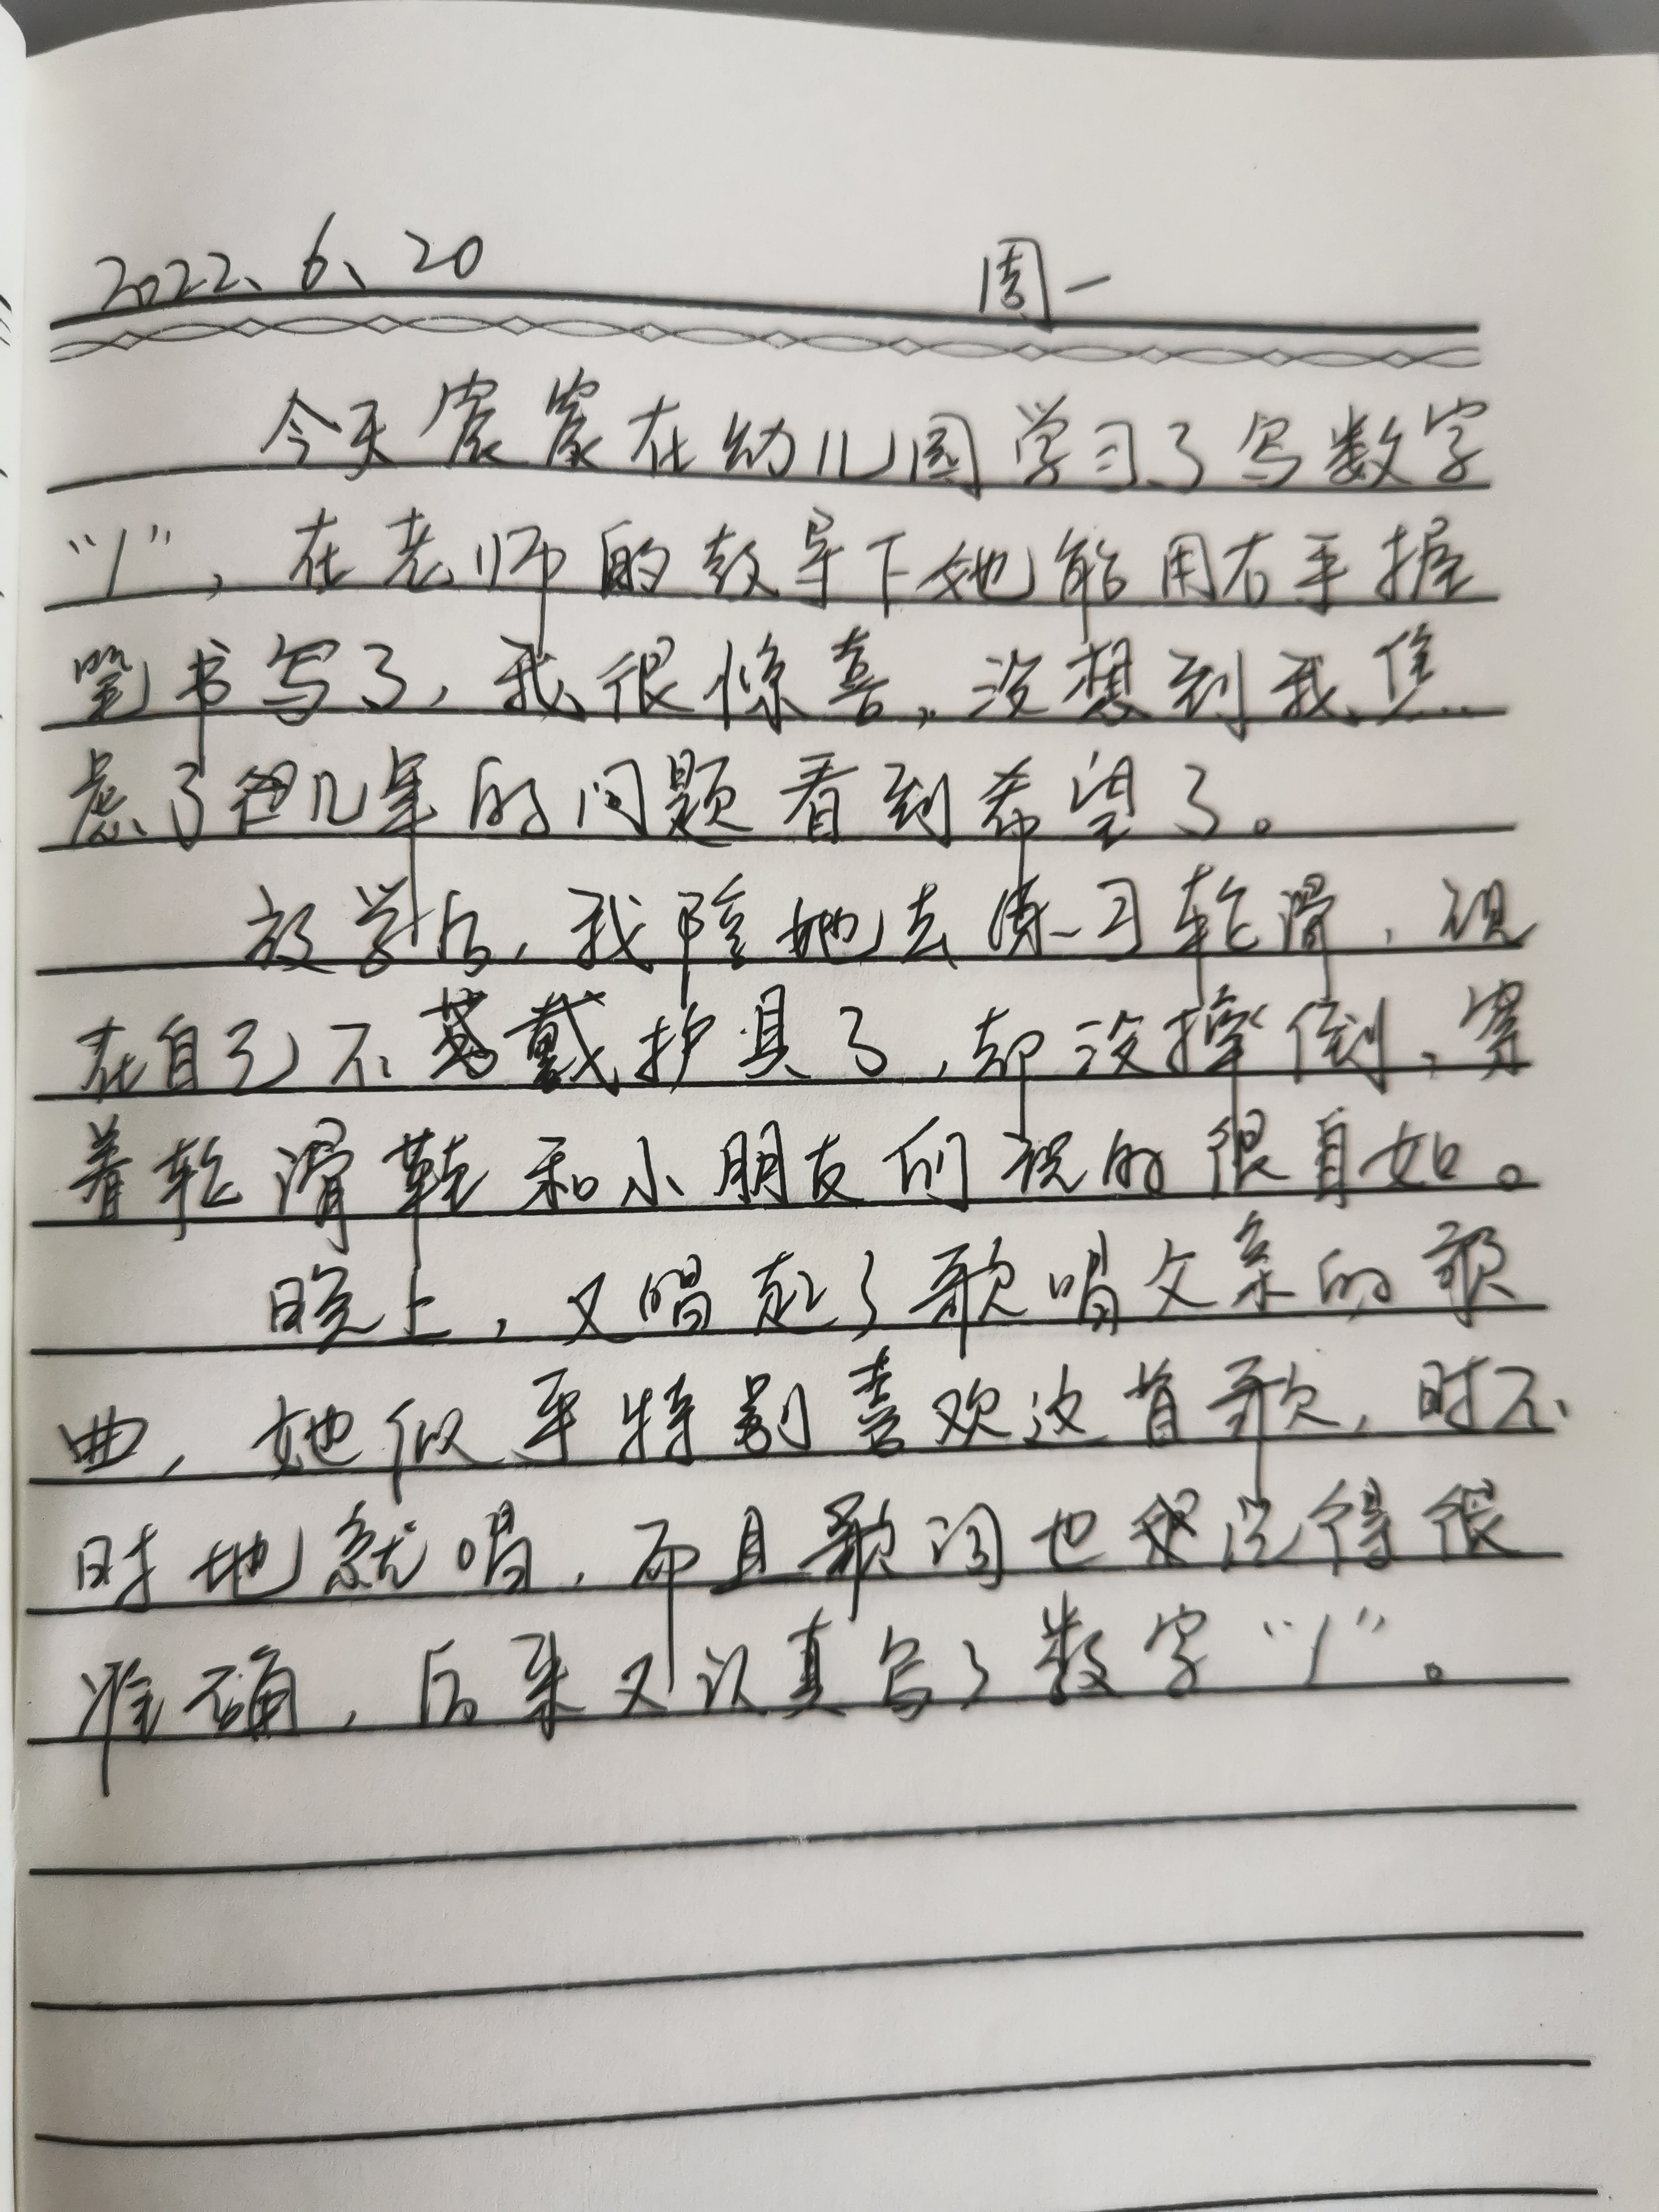 2022、6、20 周一
今天宸宸在幼儿园学习了写数字
“1”，在老师的教导下她能用右手握
笔书写了，我很惊喜，没想到我焦
虑了几年的问题看到希望了。
放学后，我陪她去练习轮滑，现
在自己不戴护具了，却没摔倒，穿
着轮滑鞋和小朋友们玩的很自如。
晚上，又唱起了歌唱父亲的歌
曲，她似乎特别喜欢这首歌，时不
时地就唱，而且歌词也说得很
准确，后来又认真写了数字“1”。